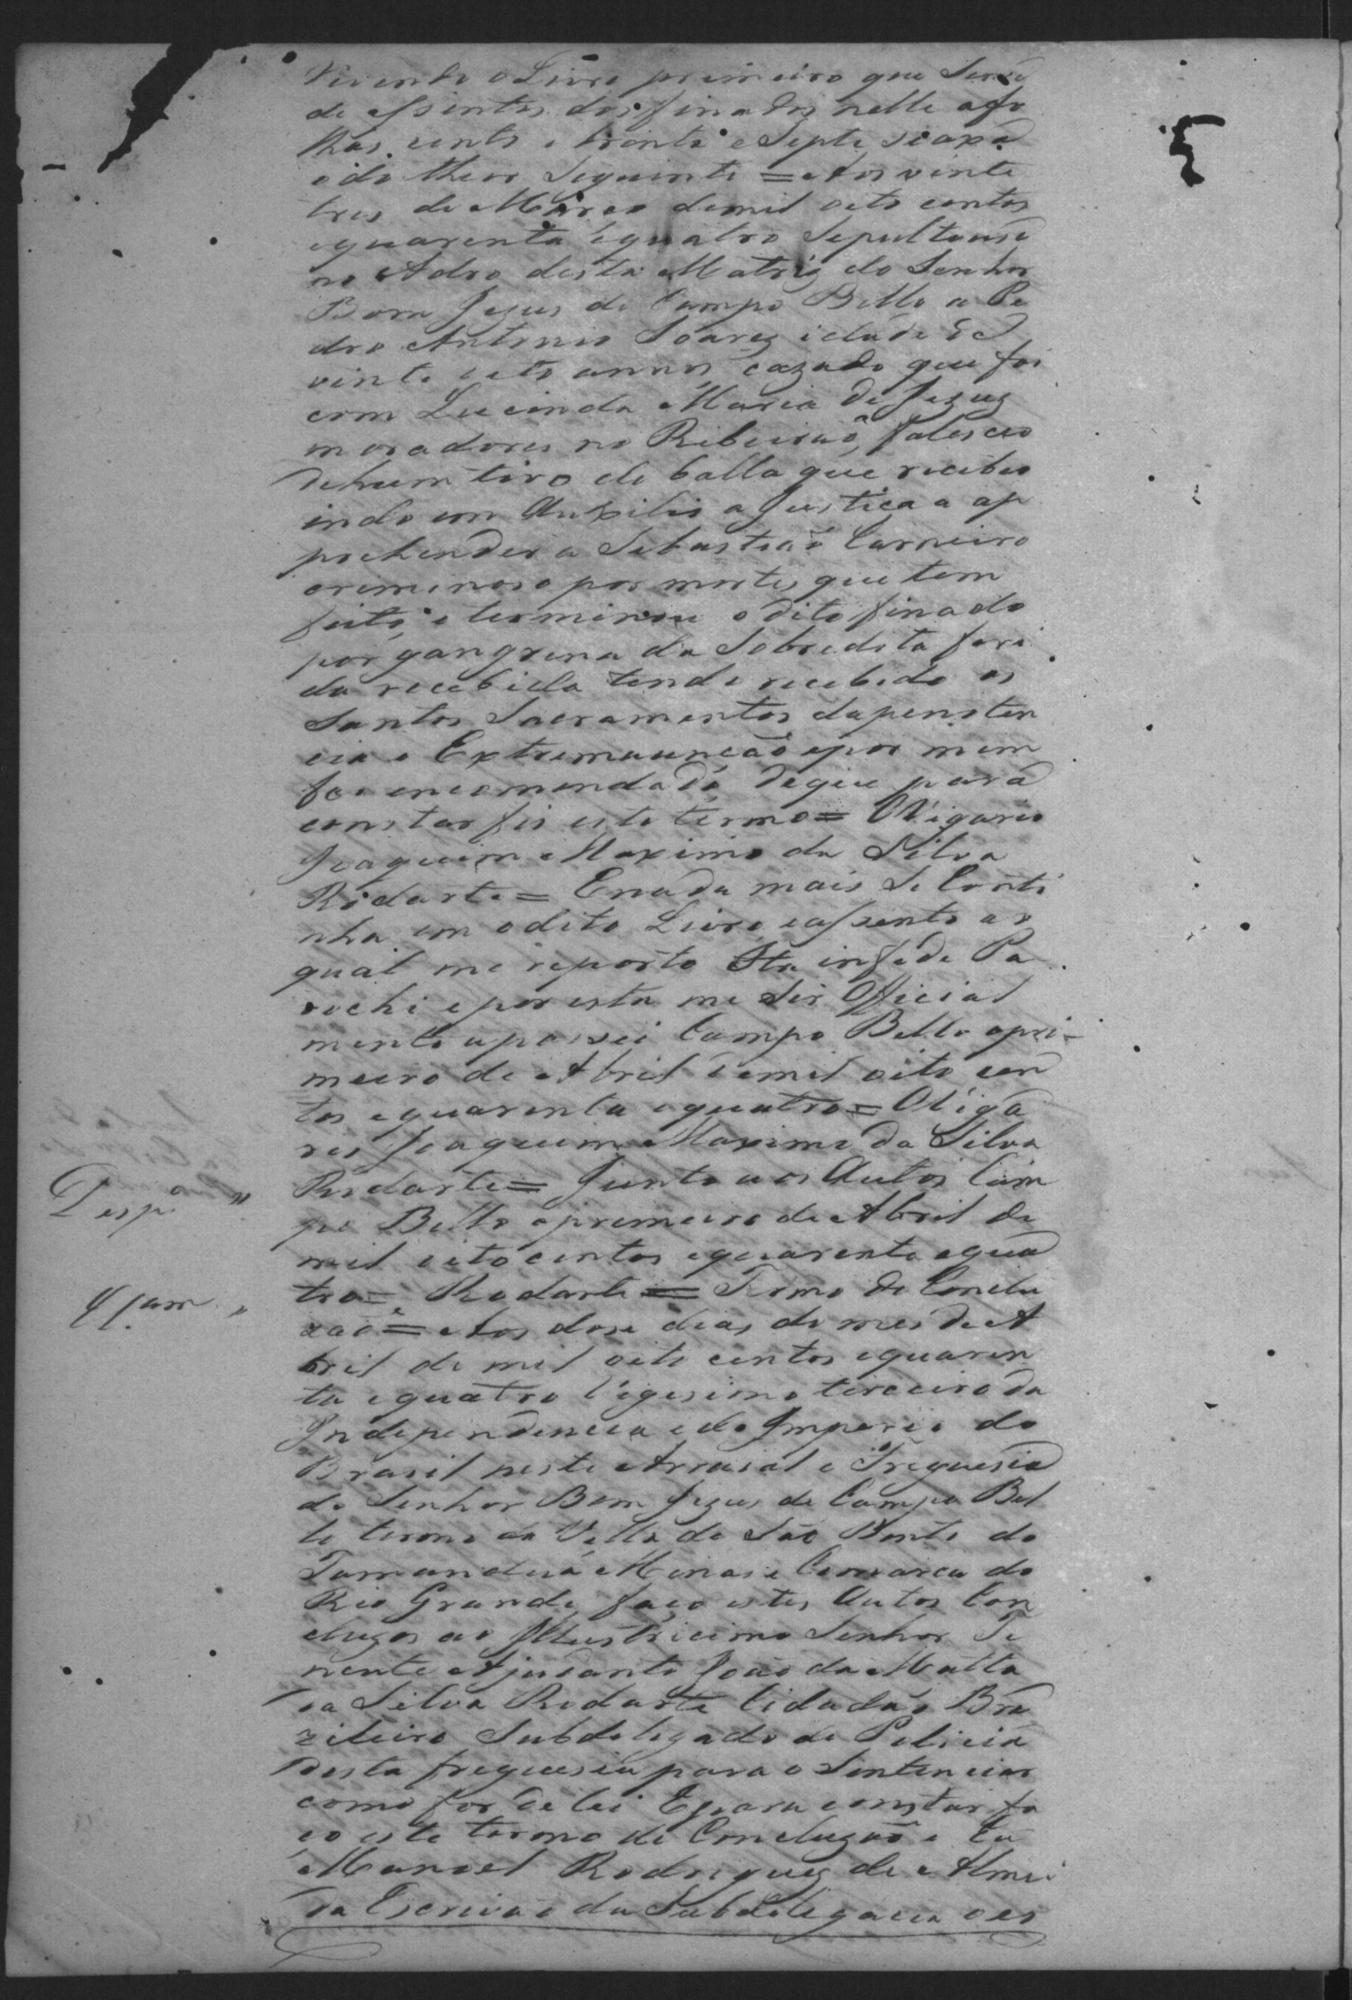 Vivendo o Livro primeiro que Serve
de assentos dos finados nelle a fo
lhas cento e trinta e Septe se axa
o do theor Seguinte = Aos vinte
tres de Março de mil oito centos
e quarenta e quatro Sepultouse
no Adro desta Matriz do Senhor
Bom Jezus de Campo Bello a Pe
dro Antonio Soarez idade de
vinte oito annos cazado que foi
com Lucinda Maria de Jezuz
moradores no Ribeiraõ, falesceo
de hum tiro de balla que recebeo
indo em Auxilio a Justica a ap
prehender a Sebastiaõ Carneiro
creminoso por mortes que tem
feito, e terminou o dito finado
por gangrena da Sobredita feri
da recebida tendo recebido os
Santos Sacramentos da peniten
cia e Extremaunção e por mim
foi encomendado de que para
constar fis este termo = O Vigario
Joaquim Maximo da Silva
Rodarte = E nada mais Se Conti
nha em o dito Livro e assento ao
qual me reporto Ita in fede Pa
rochi e por esta me Ser Official
mente a passei Campo Bello a pri-
meiro de Abril de mil oito cen
tos e quarenta e quatro = O Viga
rio Joaquim Maximo da Silva
Rodarte = Junto aos Autos Cam
Desp.º "
po Bello o premeiro de Abril de
mil oito centos e quarenta e qua
tro = Rodarte = Termo de Conclu
zaõ = Aos dose dias do mes de A
bril de mil oito centos e quaren
ta e quatro Vigesimo terceiro da
Independencia e do Imperio do
Brasil neste Arraial e Freguesia
do Senhor Bom Jezus de Campo Bel
lo termo da Villa de São Bento do
Tamanduá Minas e Comarca do
Rio Grande, faço estes Autos Con
cluzos ao Illustricimo Senhor Te
nente Ajudante João da Matta
da Silva Rodarte Cidadão Bra
zileiro Subdelegado de Policia
desta freguesia para o Sentenciar
como for de lei E para constar fa
ço este termo de Concluzaõ e Eu
Manoel Rodriguez de Almei
da Escrivão da Subdelegacia o es